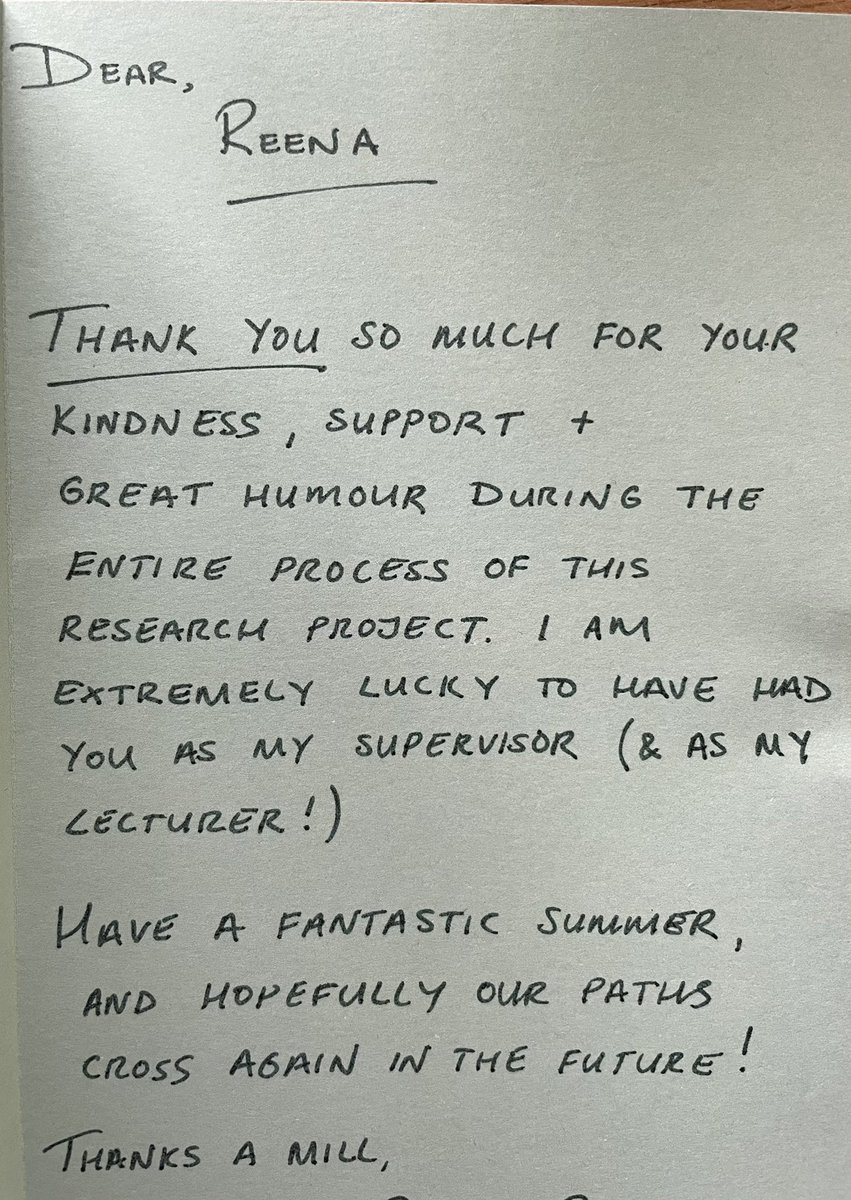 DEAR,
REENA
THANK YOU SO MUCH FOR YOUR
KINDNESS, SUPPORT +
GREAT HUMOUR DURING THE
ENTIRE PROCESS OF THIS
RESEARCH PROJECT. I AM
EXTREMELY LUCKY TO HAVE HAD
YOU AS MY SUPERVISOR (& AS MY
LECTURER!)
HAVE A FANTASTIC SUMMER,
AND HOPEFULLY OUR PATHS
CROSS AGAIN IN THE FUTURE!
THANKS A MILL,